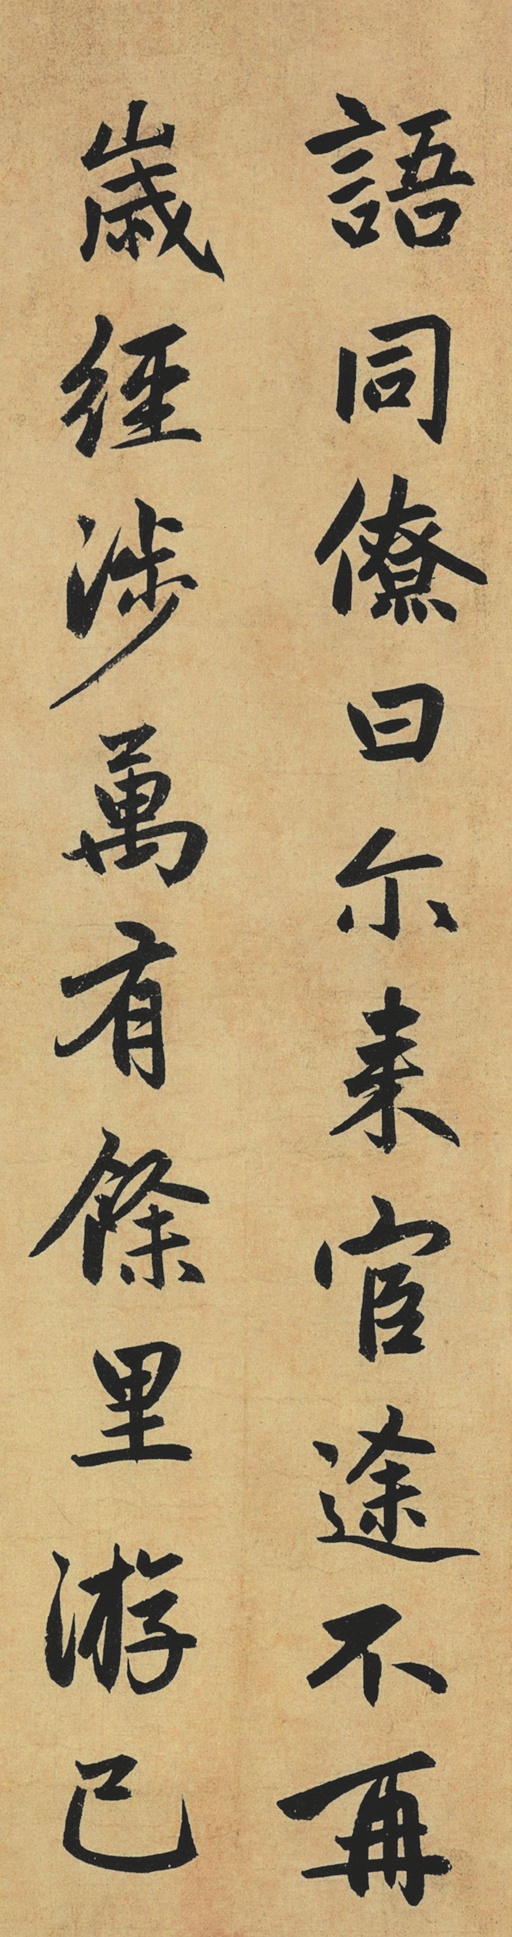 語同僚曰尔来宦途不再
歲經涉萬有餘里游已